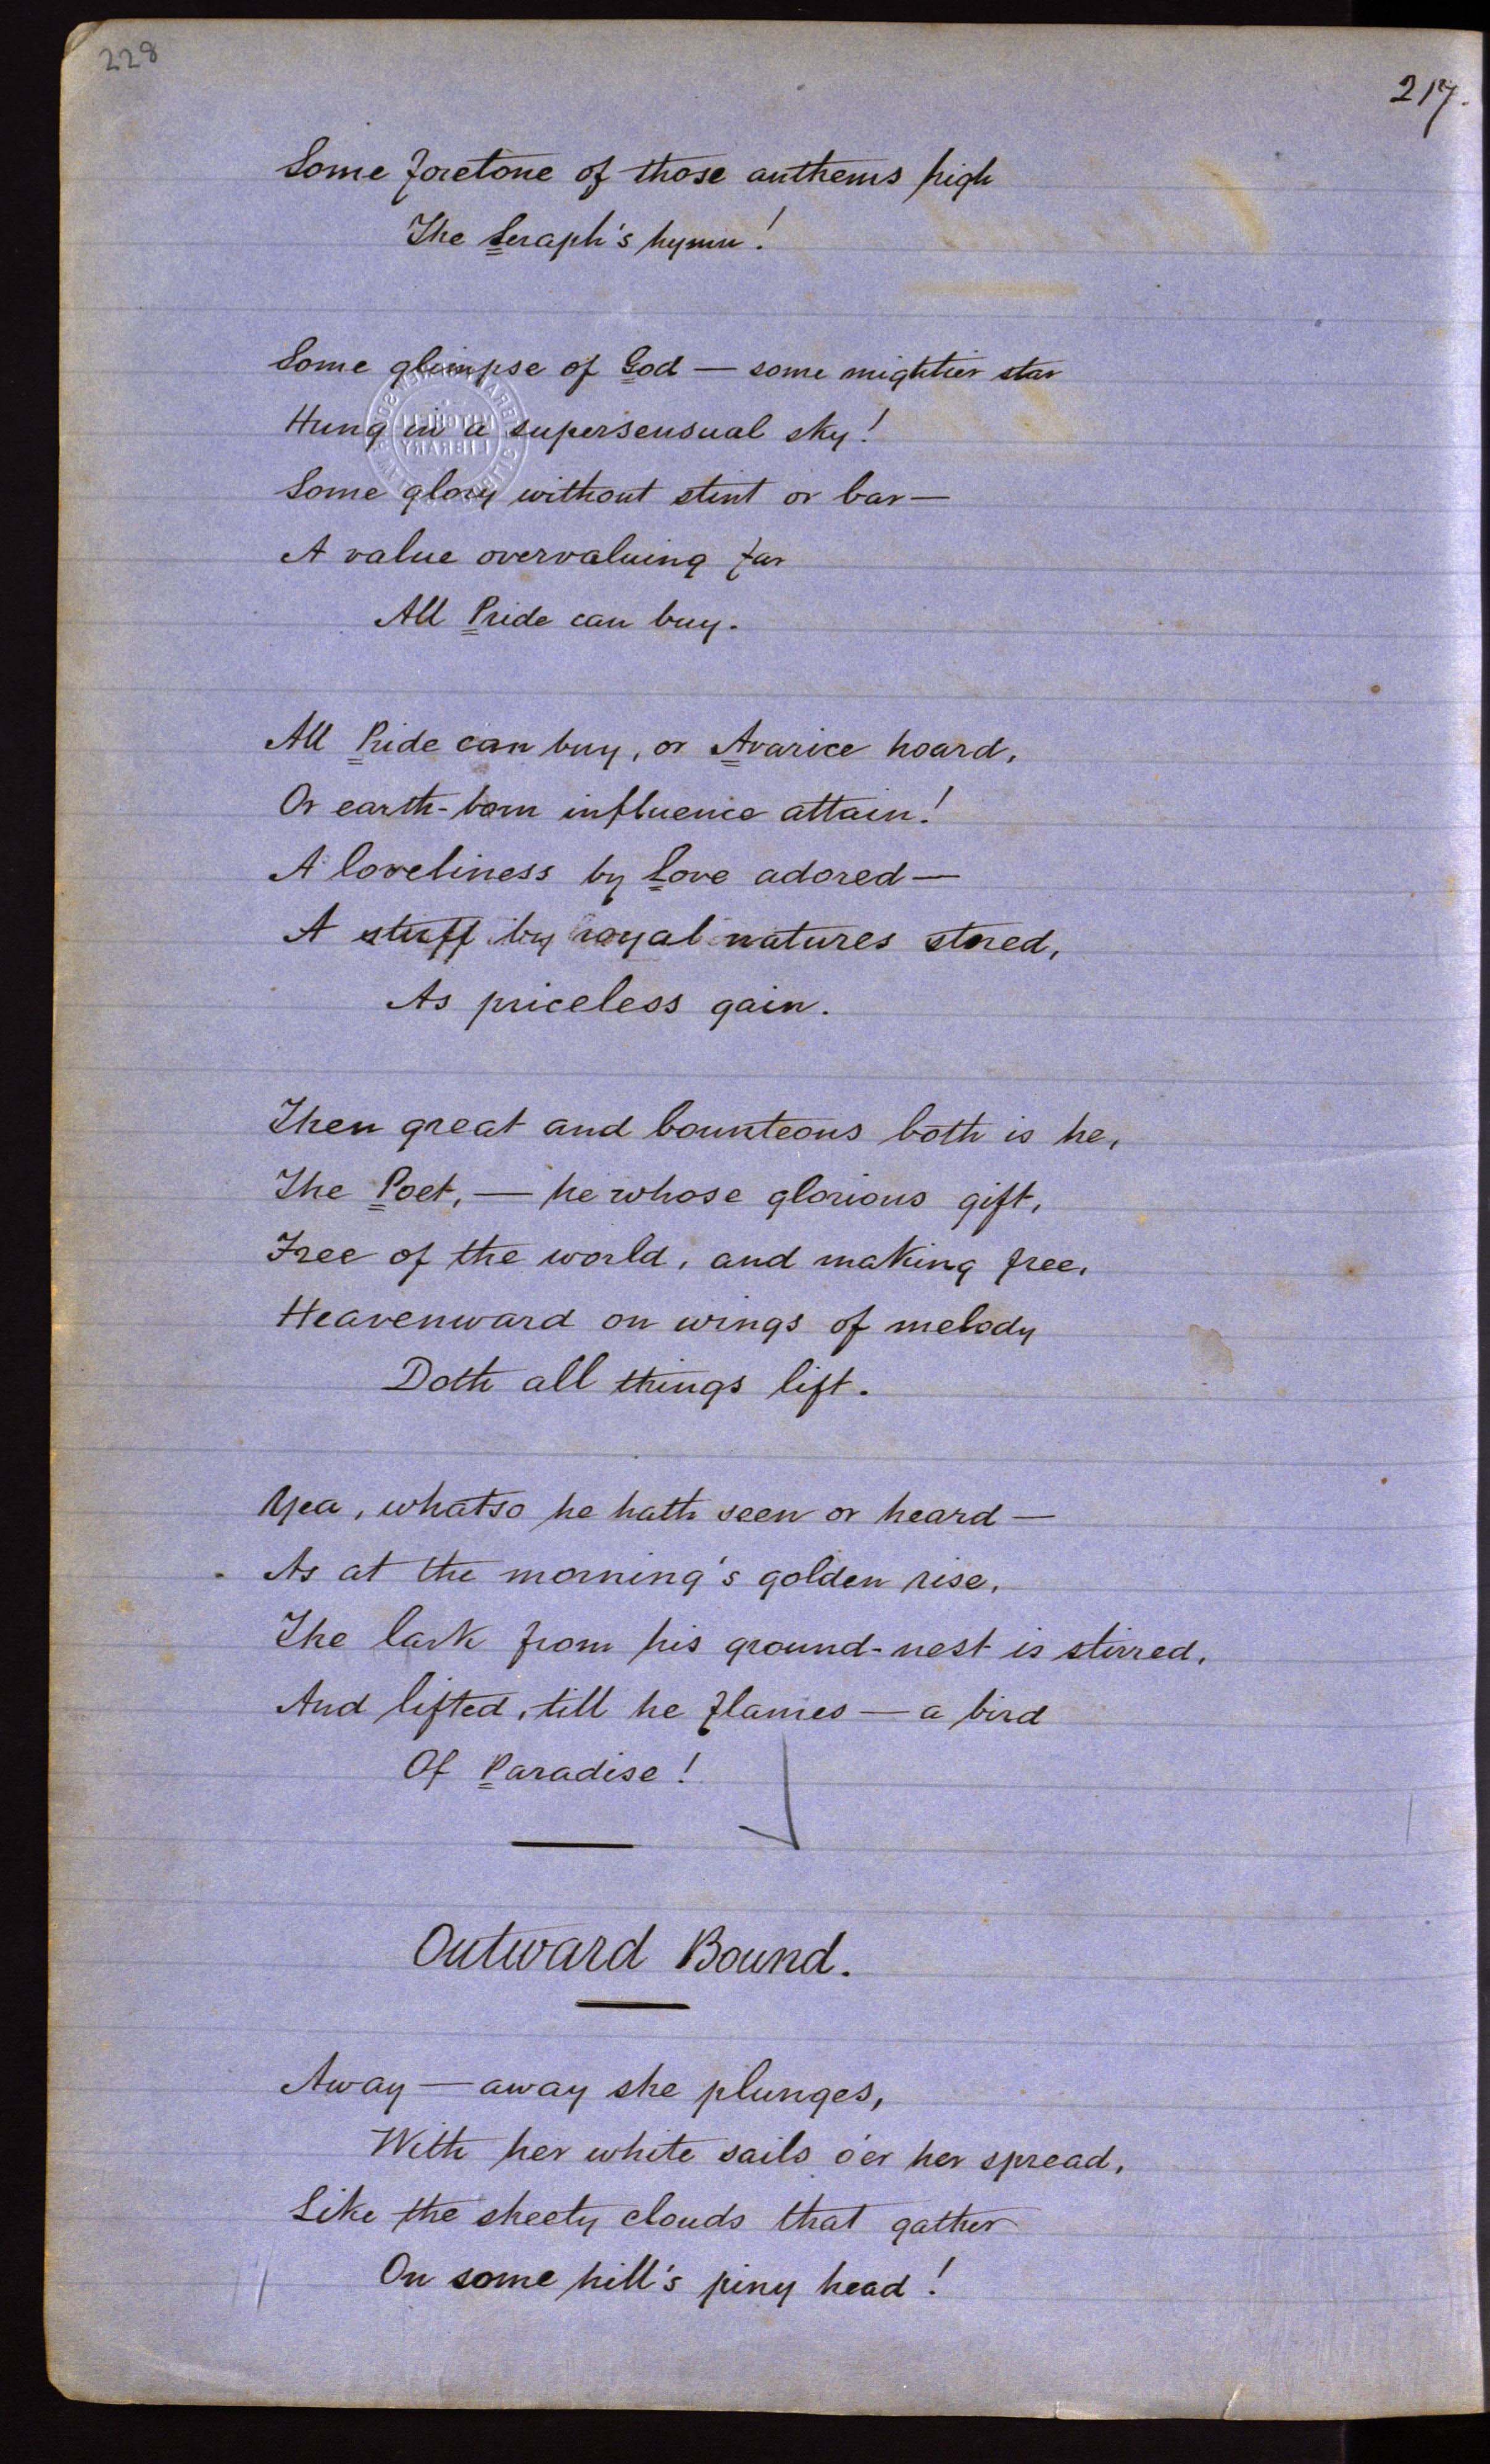 228
217.
Some foretone of those anthems high
The Seraph's hymn!
Some glimpse of God — some mightier star
Hung in a supersensual sky!
Some glory without stint or bar —
A value overvaluing far
All Pride can buy.
All Pride can buy, or Avarice hoard,
Or earth-born influence attain!
A loveliness by Love adored —
A stuff by royal natures stored,
As priceless gain.
Then great and bounteous both is he,
The Poet, — he whose glorious gift,
Free of the world, and making free,
Heavenward on wings of melody
Doth all things lift.
Yea, whatso he hath seen or heard —
As at the morning's golden rise,
The lark from his ground-nest is stirred,
And lifted, till he flames — a bird
Of Paradise!
Outward Bound.
Away — away she plunges,
With her white sails o'er her spread,
Like the sheety clouds that gather
On some hill's piny head!
MITCHELL
LIBRARY